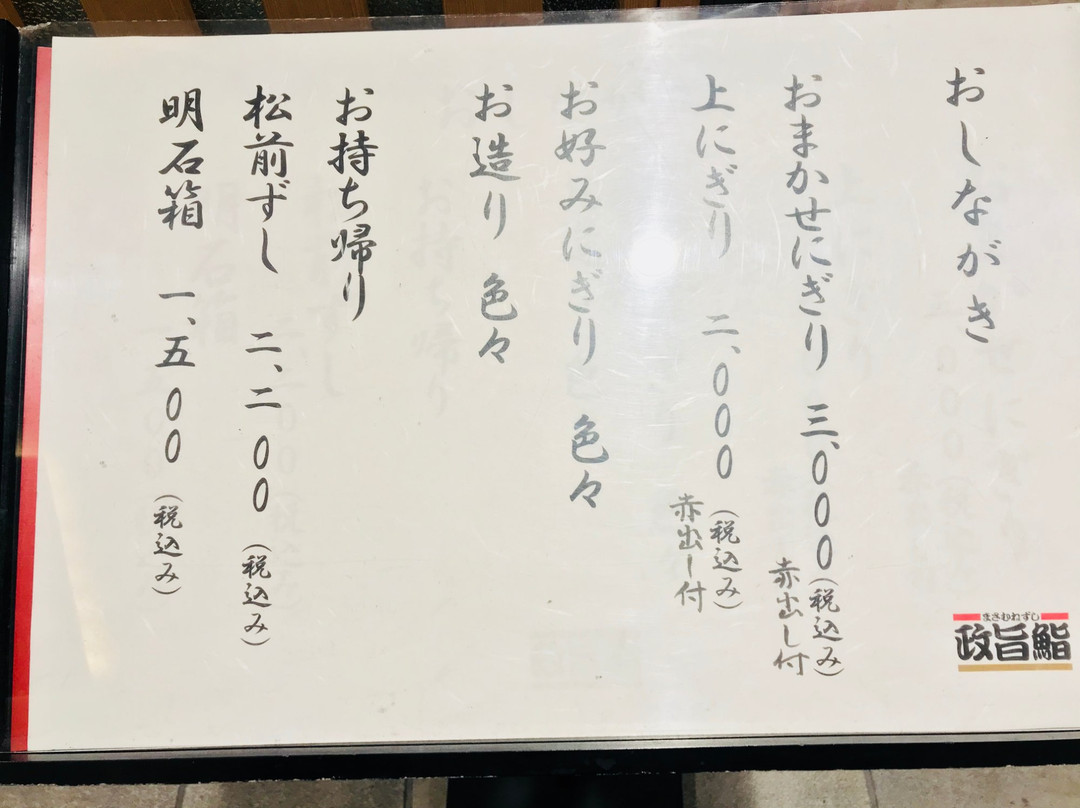 おしながき
おまかせにぎり 三、〇〇〇(税込み)
赤出し付
上にぎり 二、〇〇〇(税込み)
赤出し付
お好みにぎり 色々
お造り 色々
お持ち帰り
松前ずし 二、二〇〇(税込み)
明石箱 一、五〇〇(税込み)
まさむねずし
政旨鮨